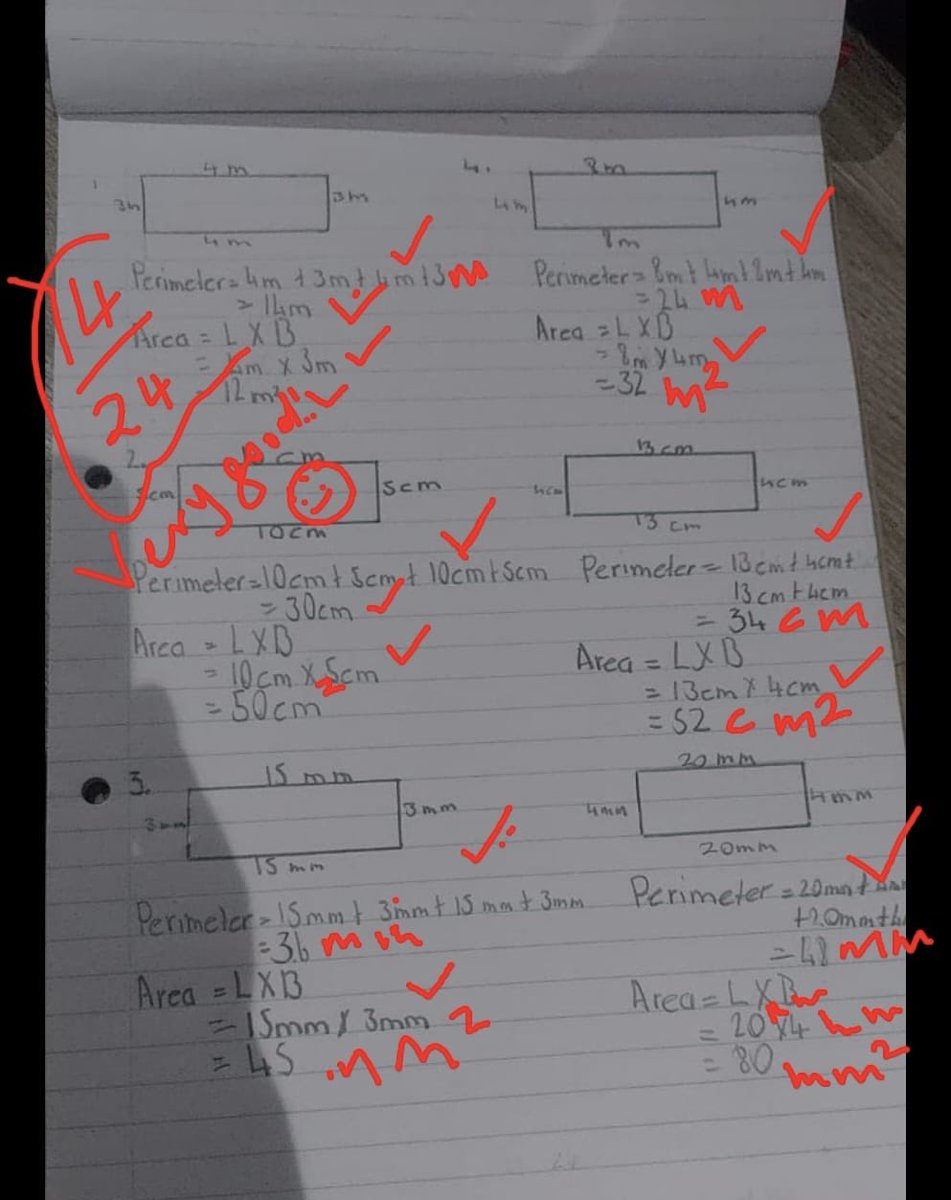 4 m
3m
4 m
Perimeter = 4m + 3m + 4m + 3m
= 14m
Area = L X B
= 4m x 3m
= 12 m²
14
24
Very good
2.
cm
5cm
5cm
10cm
Perimeter = 10cm + 5cm + 10cm + 5cm
= 30cm
Area = L X B
= 10cm X 5cm
= 50cm 2
3.
15 mm
3mm
3mm
15 mm
Perimeter = 15mm + 3mm + 15 mm + 3mm
= 36
Area = L X B
= 15mm X 3mm
= 45
4.
8m
4m
4m
8m
Perimeter = 8m + 4m + 8m + 4m
= 24 m
Area = L X B
= 8m X 4m
= 32 m²
13 cm
4cm
4cm
13 cm
Perimeter = 13cm + 4cm +
13cm + 4cm
= 34 cm
Area = L X B
= 13cm X 4cm
= 52 cm2
20 mm
4mm
4mm
20mm
Perimeter = 20mm +
+20mm +
= 48 mm
Area = L X B
= 20 X 4
= 80 mm²